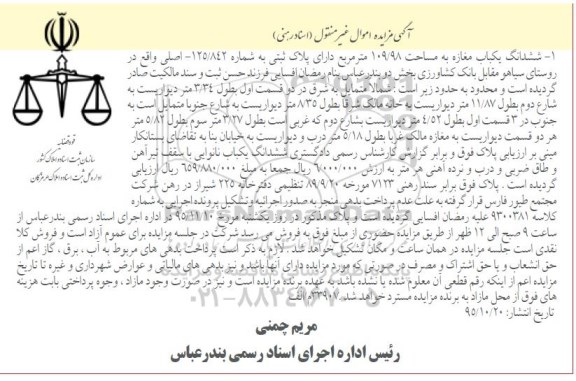 آگهی مزایده اموال غیر منقول (اسناد رهنی)
قوه قضائیه
سازمان ثبت اسناد و املاک کشور
اداره کل ثبت اسناد و املاک هرمزگان
۱- ششدانگ یکباب مغازه به مساحت ۱۰۹/۹۸ مترمربع دارای پلاک ثبتی به شماره ۱۲۵/۸۴۲- اصلی واقع در
روستای سیاهو مقابل بانک کشاورزی بخش دو بندرعباس بنام رمضان افسایی فرزند حسن ثبت و سند مالکیت صادر
گردیده است و محدود به حدود زیر است: شمالا متمایل به شرق در دو قسمت اول بطول ۳/۳۴ متر دیواریست به
شارع دوم بطول ۱۱/۸۷ متر دیواریست به خانه مالک شرقا بطول ۸/۳۵ متر دیواریست به شارع جنوبا متمایل است به
جنوب در ۳ قسمت اول بطول ۴/۵۲ متر دیواریست بشارع دوم که غربی است بطول ۳/۲۷ متر سوم بطول ۵/۸۲ متر
هر دو قسمت دیواریست به مغازه مالک غربا بطول ۵/۱۸ متر درب و دیواریست به خیابان بنا به تقاضای بستانکار
مبنی بر ارزیابی پلاک فوق و برابر گزارش کارشناس رسمی دادگستری ششدانگ یکباب نانوایی با سقف تیرآهن
و طاق ضربی و درب و نرده آهنی هر متر به ارزش ۶۰۰۰/۰۰۰ ریال جمعا به مبلغ ۶۵۹/۸۸۰/۰۰۰ ریال ارزیابی
گردیده است . پلاک فوق برابر سند رهنی ۷۱۲۳ مورخه ۸۹/۹/۲۰ تنظیمی دفترخانه ۲۲۵ شیراز در رهن شرکت
مجتمع طیور فارس قرار گرفته که به علت عدم پرداخت بدهی منجر به صدور اجرائیه و تشکیل پرونده اجرایی به شماره
کلاسه ۹۳۰۰۳۸۱ علیه رمضان افسایی گردیده است و پلاک مذکور در روز یکشنبه مورخ ۹۵/۱۱/۱۰ در اداره اجرای اسناد رسمی بندرعباس از
ساعت ۹ صبح الی ۱۲ ظهر از طریق مزایده حضوری از مبلغ فوق به فروش می رسد شرکت در جلسه مزایده برای عموم آزاد است و فروش کلا
نقدی است جلسه مزایده در همان ساعت و مکان تشکیل خواهد شد. لازم به ذکر است پرداخت بدهی های مربوط به آب ، برق ، گاز اعم از
حق انشعاب و یا حق اشتراک و مصرف در صورتی که مورد مزایده دارای آنها باشد و نیز بدهی های مالیاتی و عوارض شهرداری و غیره تا تاریخ
مزایده اعم از اینکه رقم قطعی آن معلوم شده یا نشده باشد به عهده برنده مزایده است و نیز در صورت وجود مازاد ، وجوه پرداختی بابت هزینه
های فوق از محل مازاد به برنده مزایده مسترد خواهد شد.
تاریخ انتشار: ۹۵/۱۰/۲۰
مریم چمنی
رئیس اداره اجرای اسناد رسمی بندرعباس